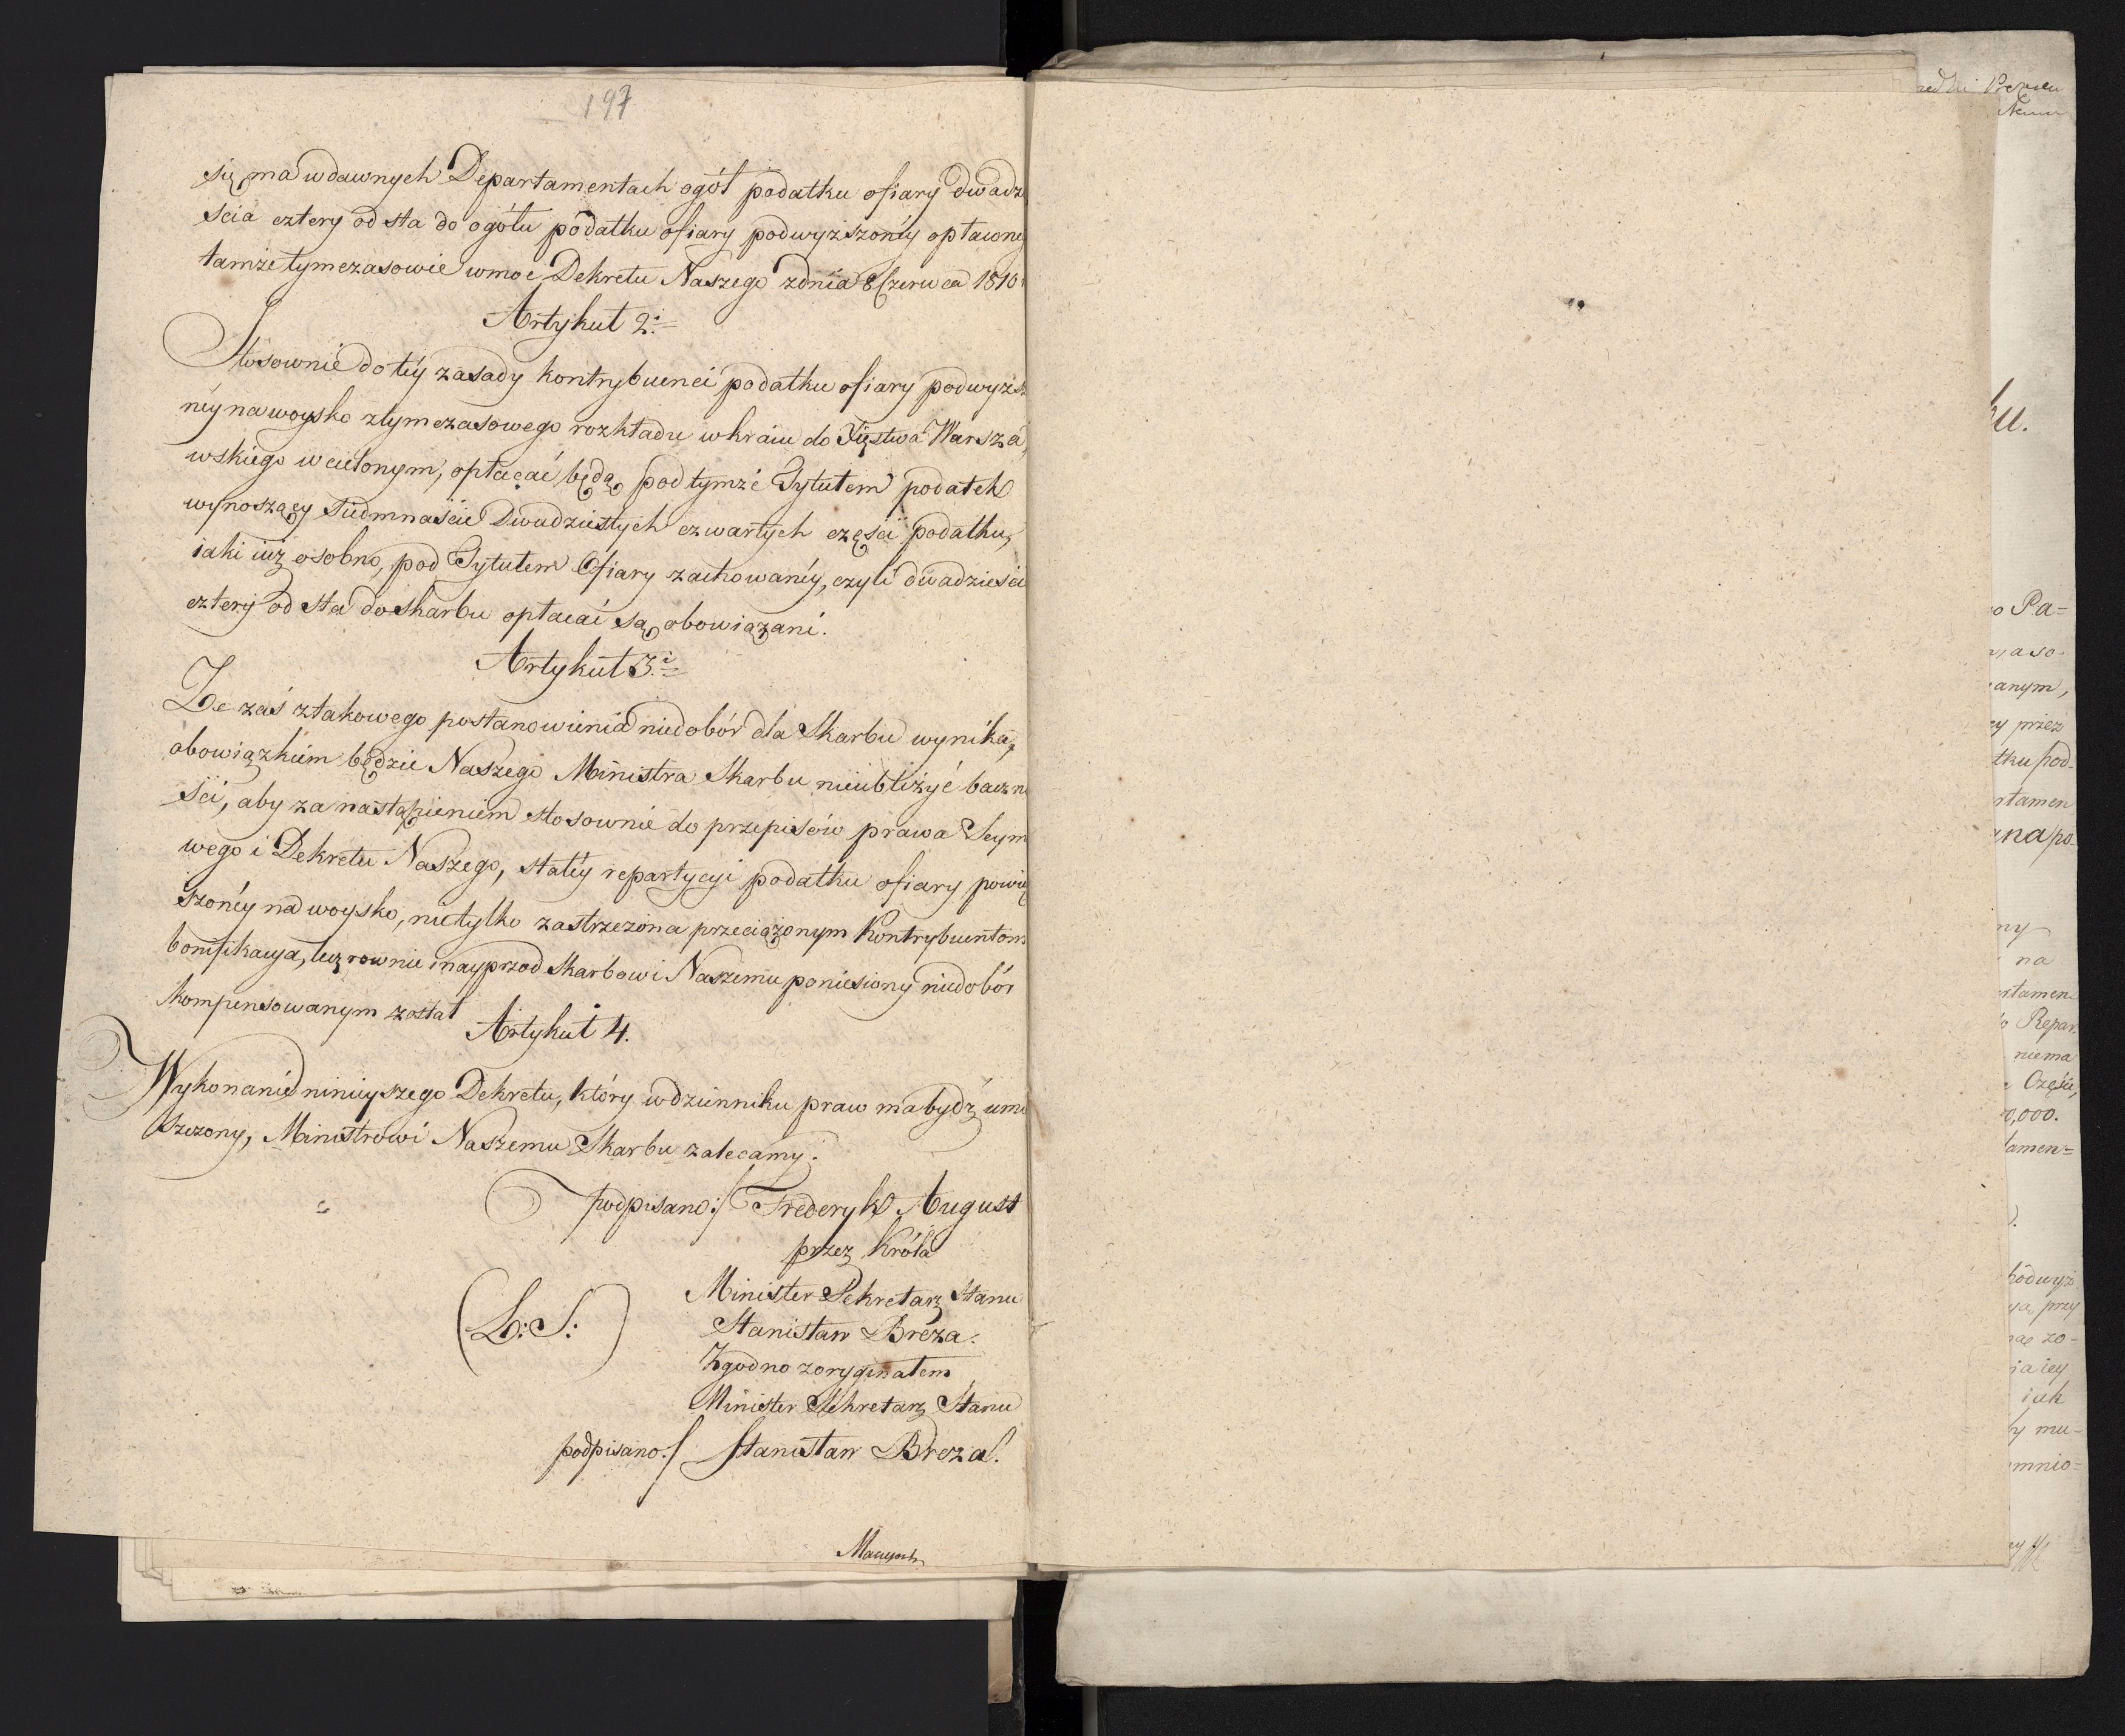 197
się ma w dawnych Departamentach ogół podatku ofiary dwadzie
scia cztery od sta do ogółu podatku ofiary podwyższonéy opłaconey
tamże tymczasowie w moc Dekretu Naszego z dnia 8 Czerwca 1810
Artykuł 2i
Stosownie do téy zasady kontrybuenci podatku ofiary podwyżs
néy na woysko z tymczasowego rozkładu w kraiu do Xięstwa Warsza,
wskiego wcielonym, opłacać będą, pod tymże Tytułem podatek
wynoszący siedmnaście Dwudziestych czwartych części podatku,
iaki iuż osobno, pod Tytułem Ofiary zachowanéy, czyli dwadzieścia
cztery od sta do skarbu opłacać są obowiązani.
Artykuł 3i
Że zaś z takowego postanowienia niedobór dla Skarbu wynika,
obowiązkiem będzie Naszego Ministra Skarbu nieubliżyć baczno
ści, aby za nastąpieniem stosownie do przepisów prawa Seym
wego i Dekretu Naszego, stałéy repartycyi podatku ofiary powię
szonéy na woysko, nietylko zastrzeżona przeciążonym Kontrybuentom
bonifikacya, lecz rownie i nayprzod Skarbowi Naszemu poniesiony niedobór
kompensowanym został
Artykuł 4.
Wykonanie ninieyszego Dekretu, który w dzienniku praw ma bydź umie
szczony, Ministrowi Naszemu Skarbu zalecamy.
podpisano:/ Frederyk August
przez Króla
Minister Sekretarz Stanu
(L: S:)
Stanisław Bréza.
Zgodno z oryginałem
Minister Sekretarz Stanu
podpisano:/ Stanisław Breza.
ku.
o Pa=
, a so-
anym,
ey przez
tku pod-
rtamen
na po-
ny
na
rtamen
Repar.
niema
Części,
0,000.
tamen=
podwyż
ya, przy
zo-
ia iey
iak
y mu-
mnio=